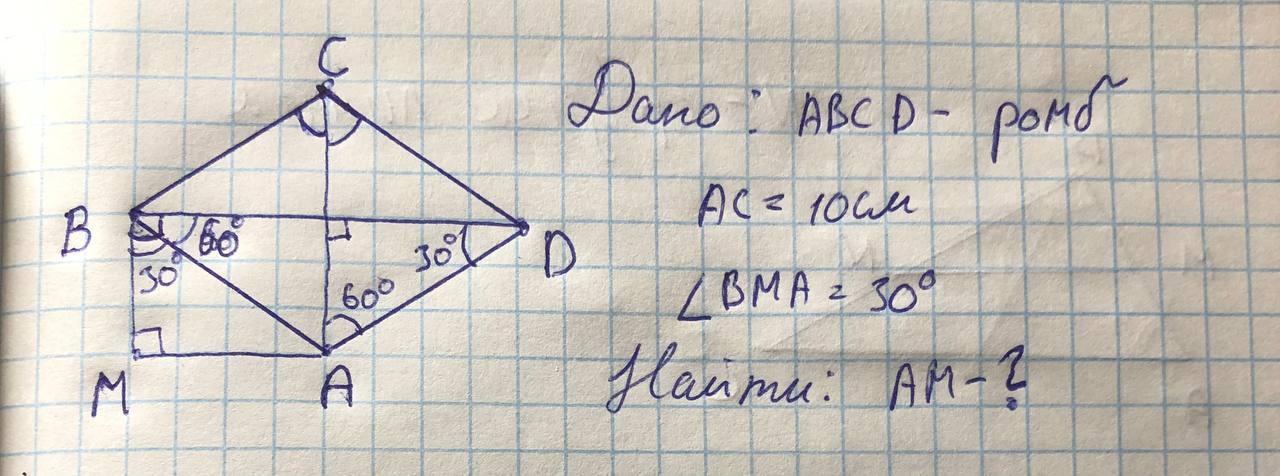 C
Дано: ABCD - ромб
AC = 10 см
B 60°
30° 30° D
60° ∠BMA = 30°
M A
Найти: AM - ?